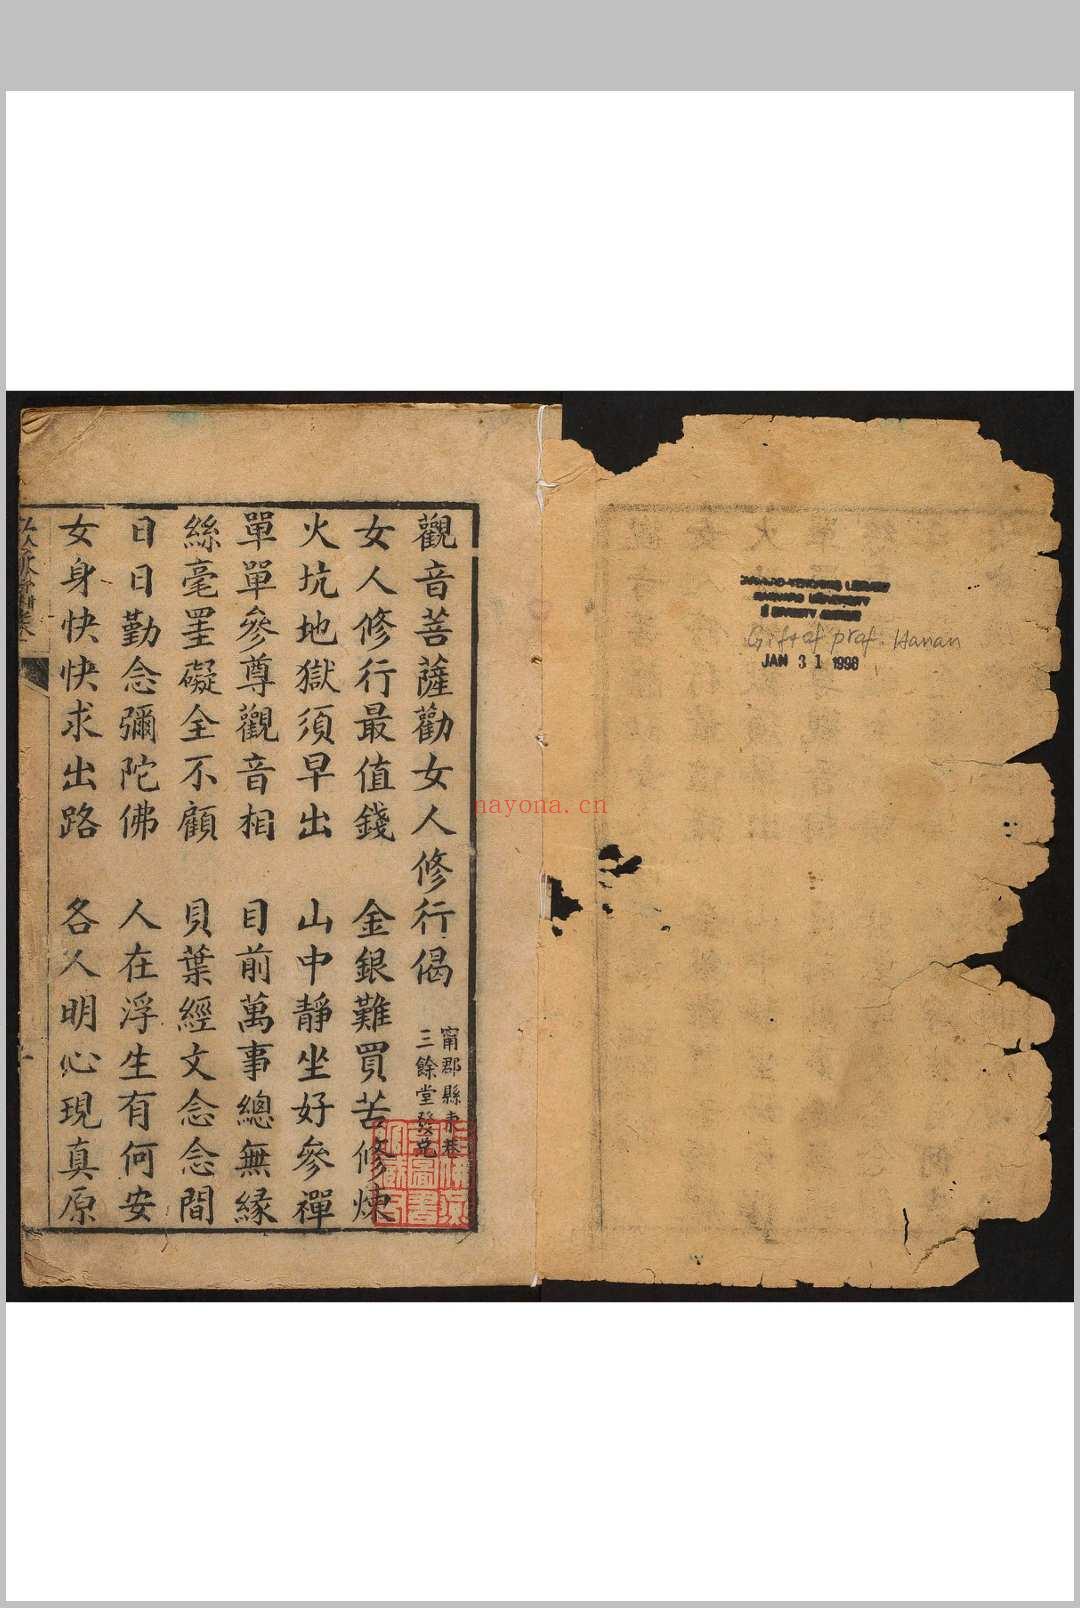 觀音菩薩勸女人修行偈
甯郡縣東巷
三餘堂發兌
女人修行最值錢 金銀難買苦修煉
火坑地獄須早出 山中靜坐好參禪
單單參尊觀音相 目前萬事總無緣
絲毫罣礙全不顧 貝葉經文念念間
日日勤念彌陀佛 人在浮生有何安
女身快快求出路 各人明心現真原
Gift of prof. Hanan
JAN 31 1998
nayona.cn